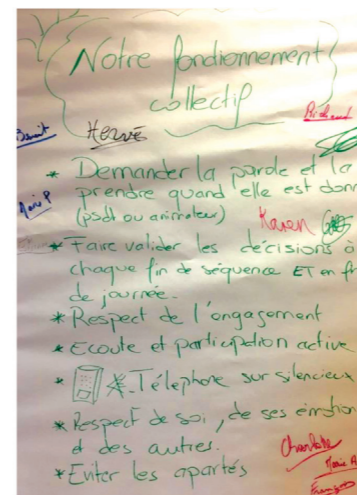 Notre fonctionnement
collectif
Richard
Benoit
Hervé
* Demander la parole et la
prendre quand elle est donn
Marie P
(psdt ou animateur)
Karen
* Faire valider les décisions à
chaque fin de séquence ET en fin
de journée.
* Respect de l'engagement
* Ecoute et participation active
* Téléphone sur silencieux
* Respect de soi, de ses émotion
et des autres.
Charlotte
Marie A
* Eviter les apartés
François